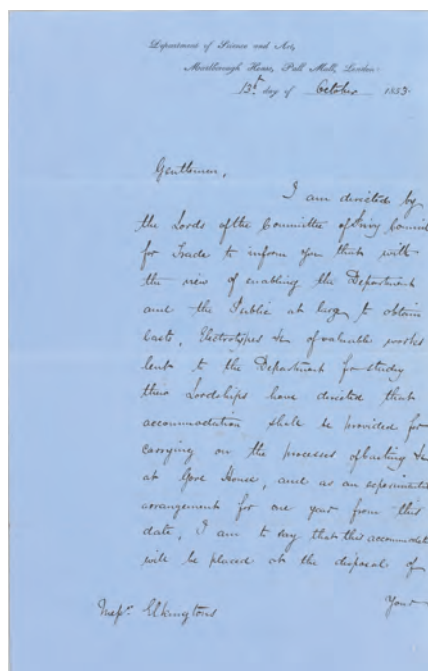 Department of Science and Art,
Marlborough House, Pall Mall, London.
13th day of October 1853.
Gentlemen,
I am directed by
the Lords of the Committee of Privy Council
for Trade to inform you that with
the view of enabling the Department
and the Public at large to obtain
Casts, Electrotypes &c of valuable works
lent to the Department for study
their Lordships have directed that
accommodation shall be provided for
carrying on the processes of Casting &c
at Gore House, and as an experimental
arrangement for one year from this
date, I am to say that this accommodat
will be placed at the disposal of
Your
Messrs. Elkingtons